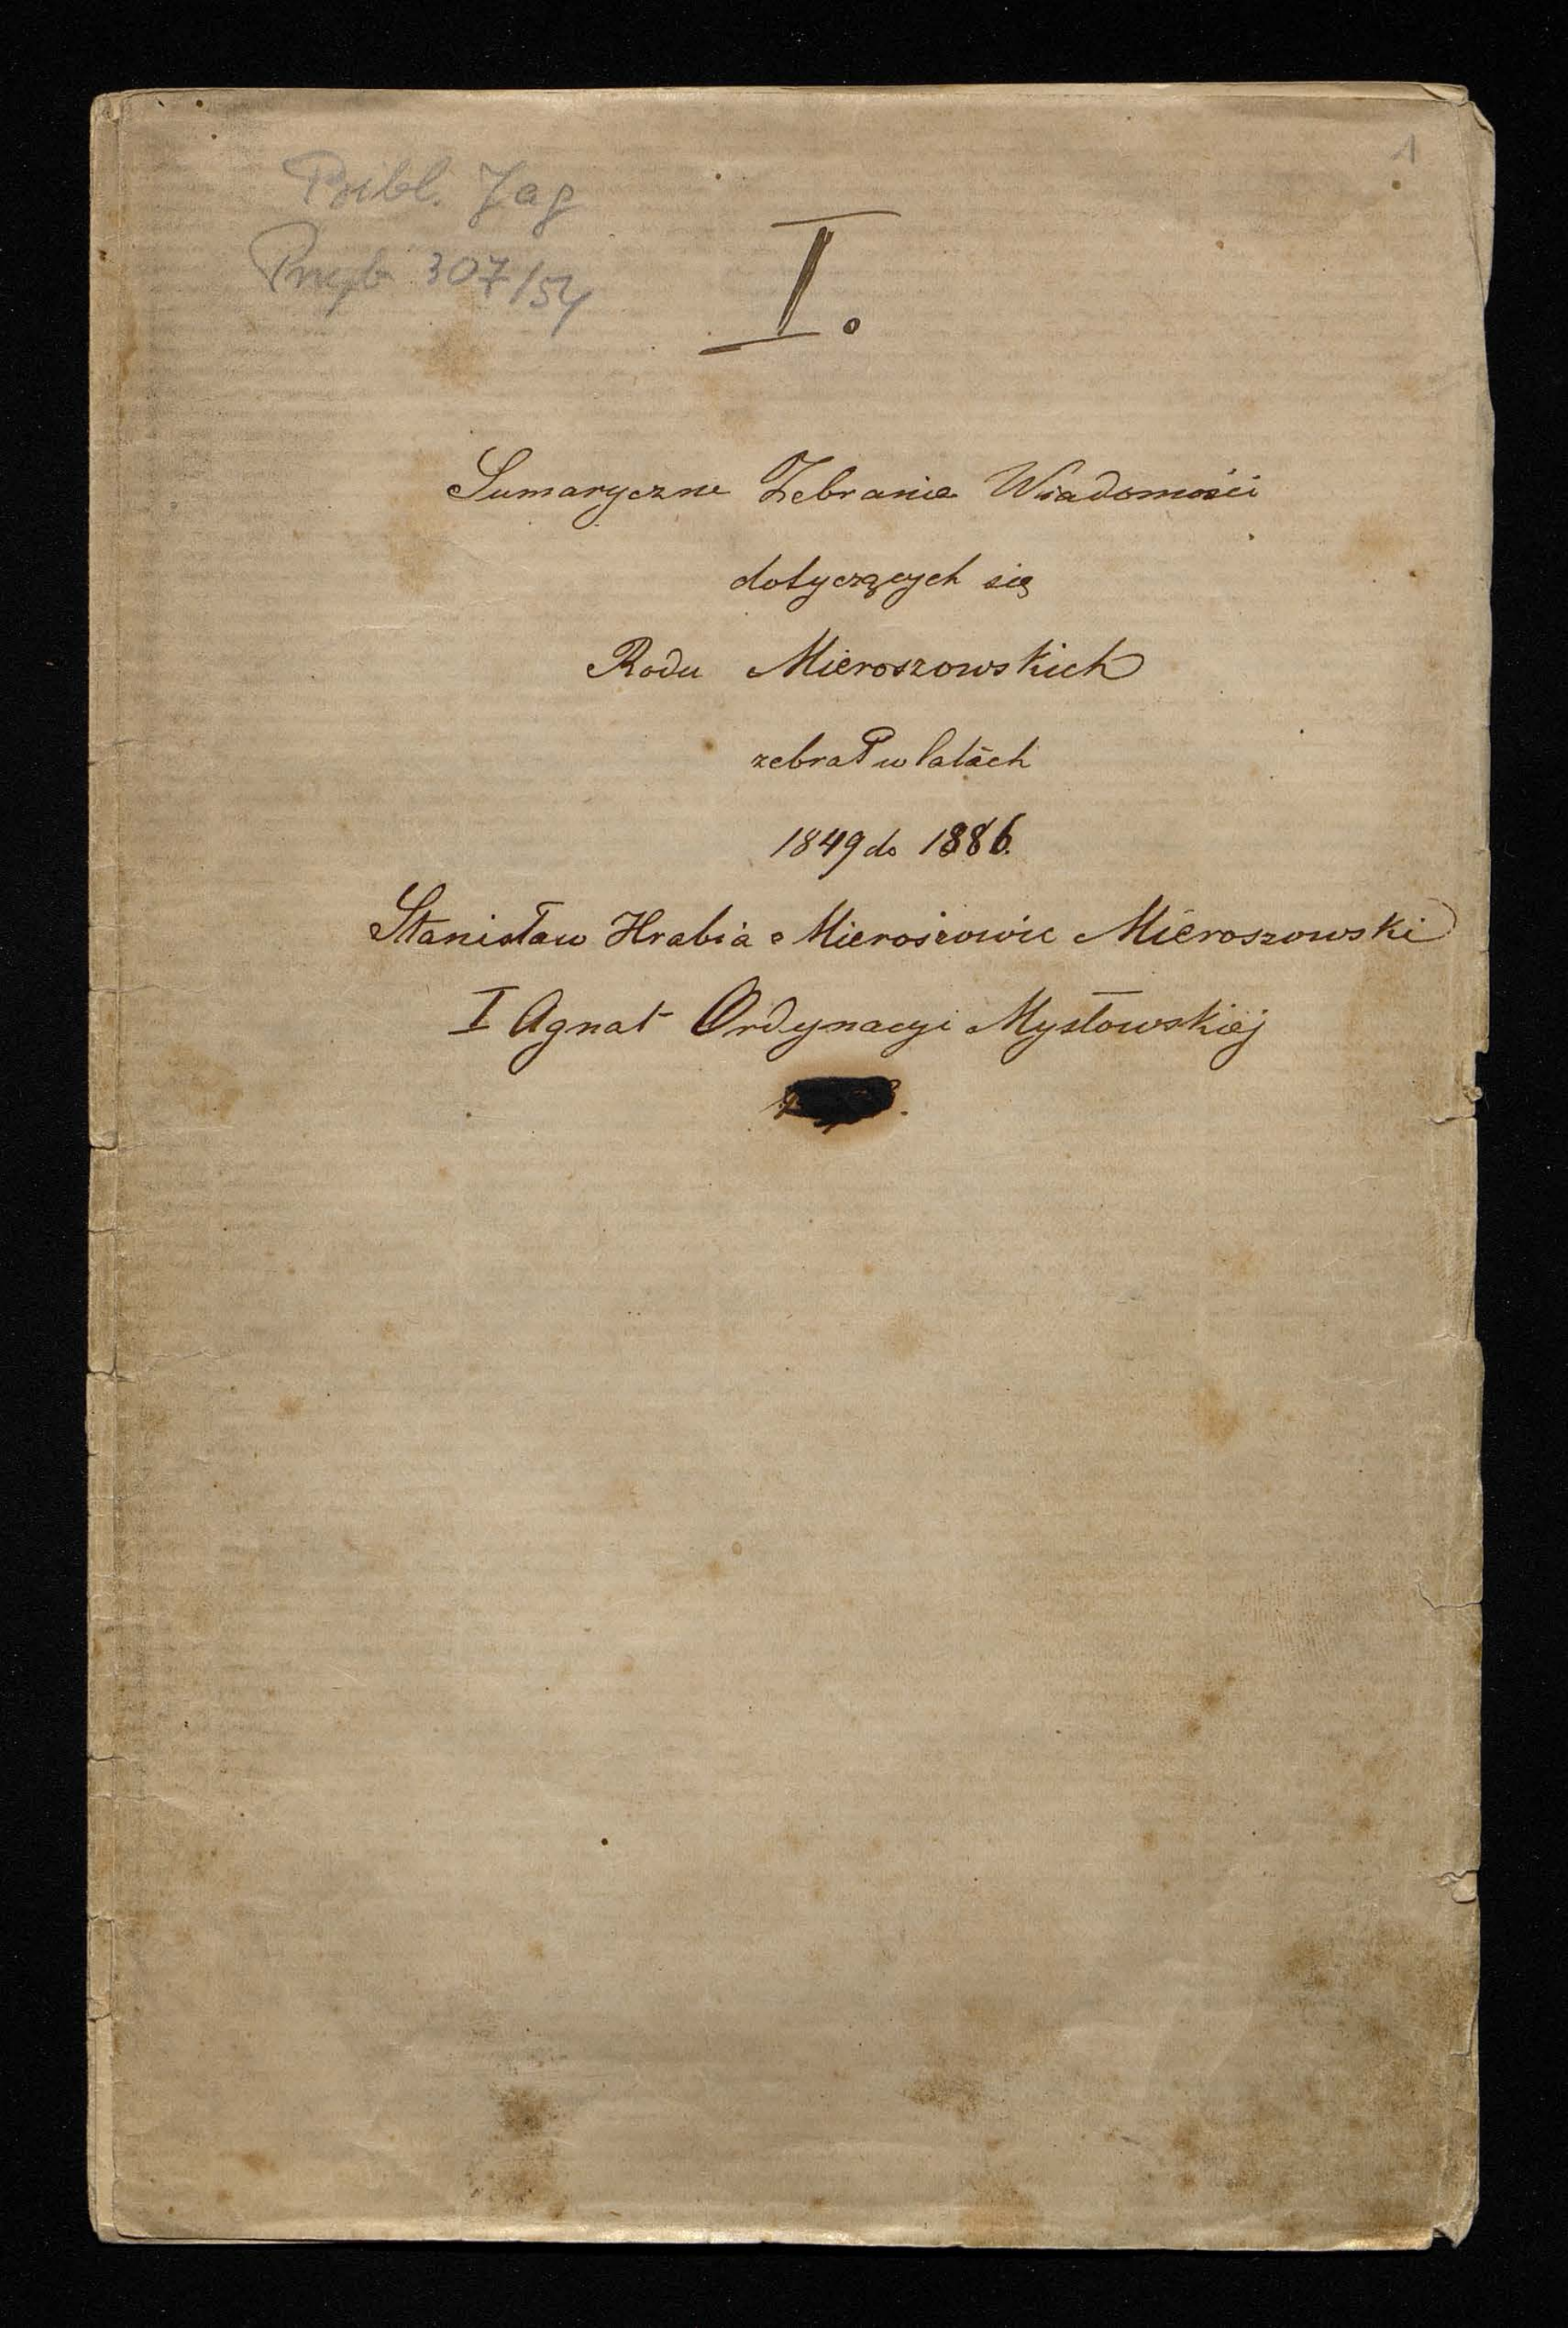 Bibl. Jag
1
Przyb 307/54
I.
Sumaryczne Zebranie Wiadomości
dotyczących się
Rodu Mieroszowskich
zebrał w latach
1849 do 1886.
Stanisław Hrabia z Mieroszowic Mieroszowski
I Agnat Ordynacyi Mysłowskiej